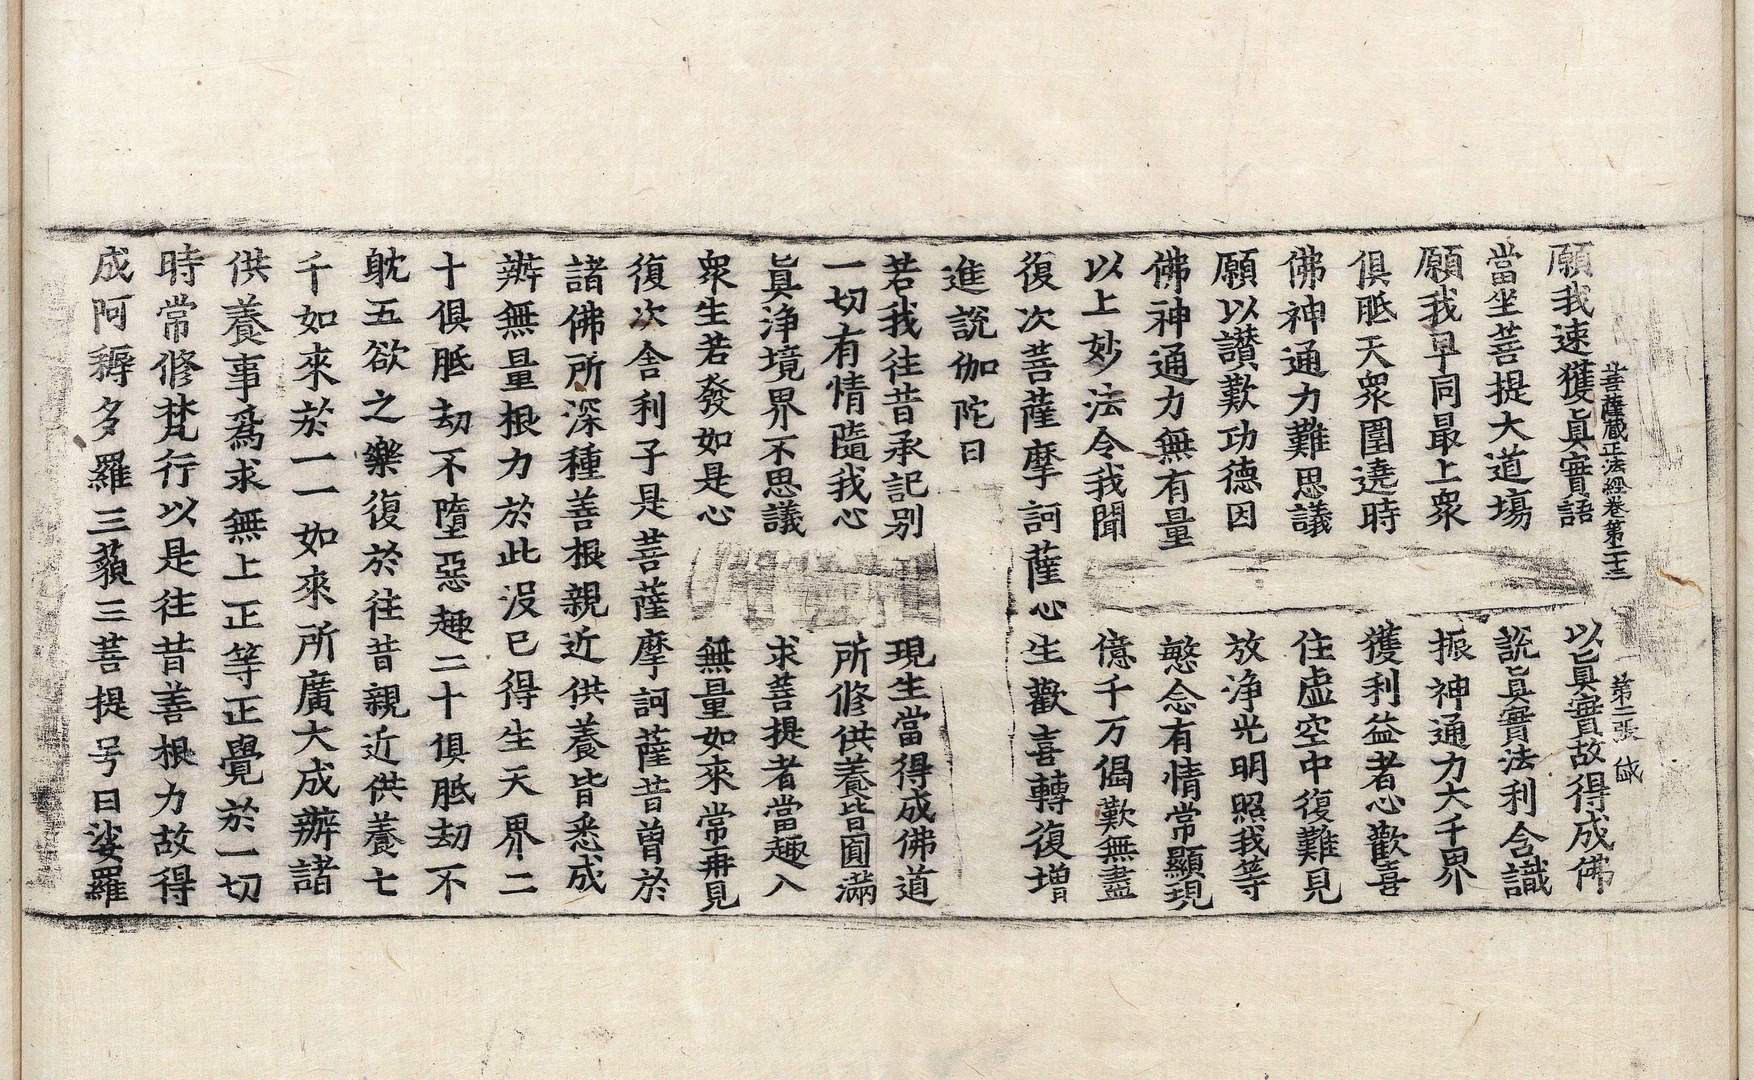 菩薩藏正法經卷第二十三 第二張 馘
願我速獲眞實語 以眞實故得成佛
當坐菩提大道場 說眞實法利含識
願我早同最上衆 振神通力大千界
俱胝天衆圍遶時 獲利益者心歡喜
佛神通力難思議 住虛空中復難見
願以讃歎功德因 放淨光明照我等
佛神通力無有量 慜念有情常顯現
以上妙法令我聞 億千万偈歎無盡
復次菩薩摩訶薩心生歡喜轉復增
進說伽陀曰
若我往昔承記別 現生當得成佛道
一切有情隨我心 所修供養皆圓滿
眞淨境界不思議 求菩提者當趣入
衆生若發如是心 無量如來常再見
復次舍利子是菩薩摩訶薩昔曾於
諸佛所深種善根親近供養皆悉成
辦無量根力於此沒已得生天界二
十俱胝劫不墮惡趣二十俱胝劫不
躭五欲之樂復於往昔親近供養七
千如來於一一如來所廣大成辦諸
供養事爲求無上正等正覺於一切
時常修梵行以是往昔善根力故得
成阿耨多羅三藐三菩提号曰娑羅